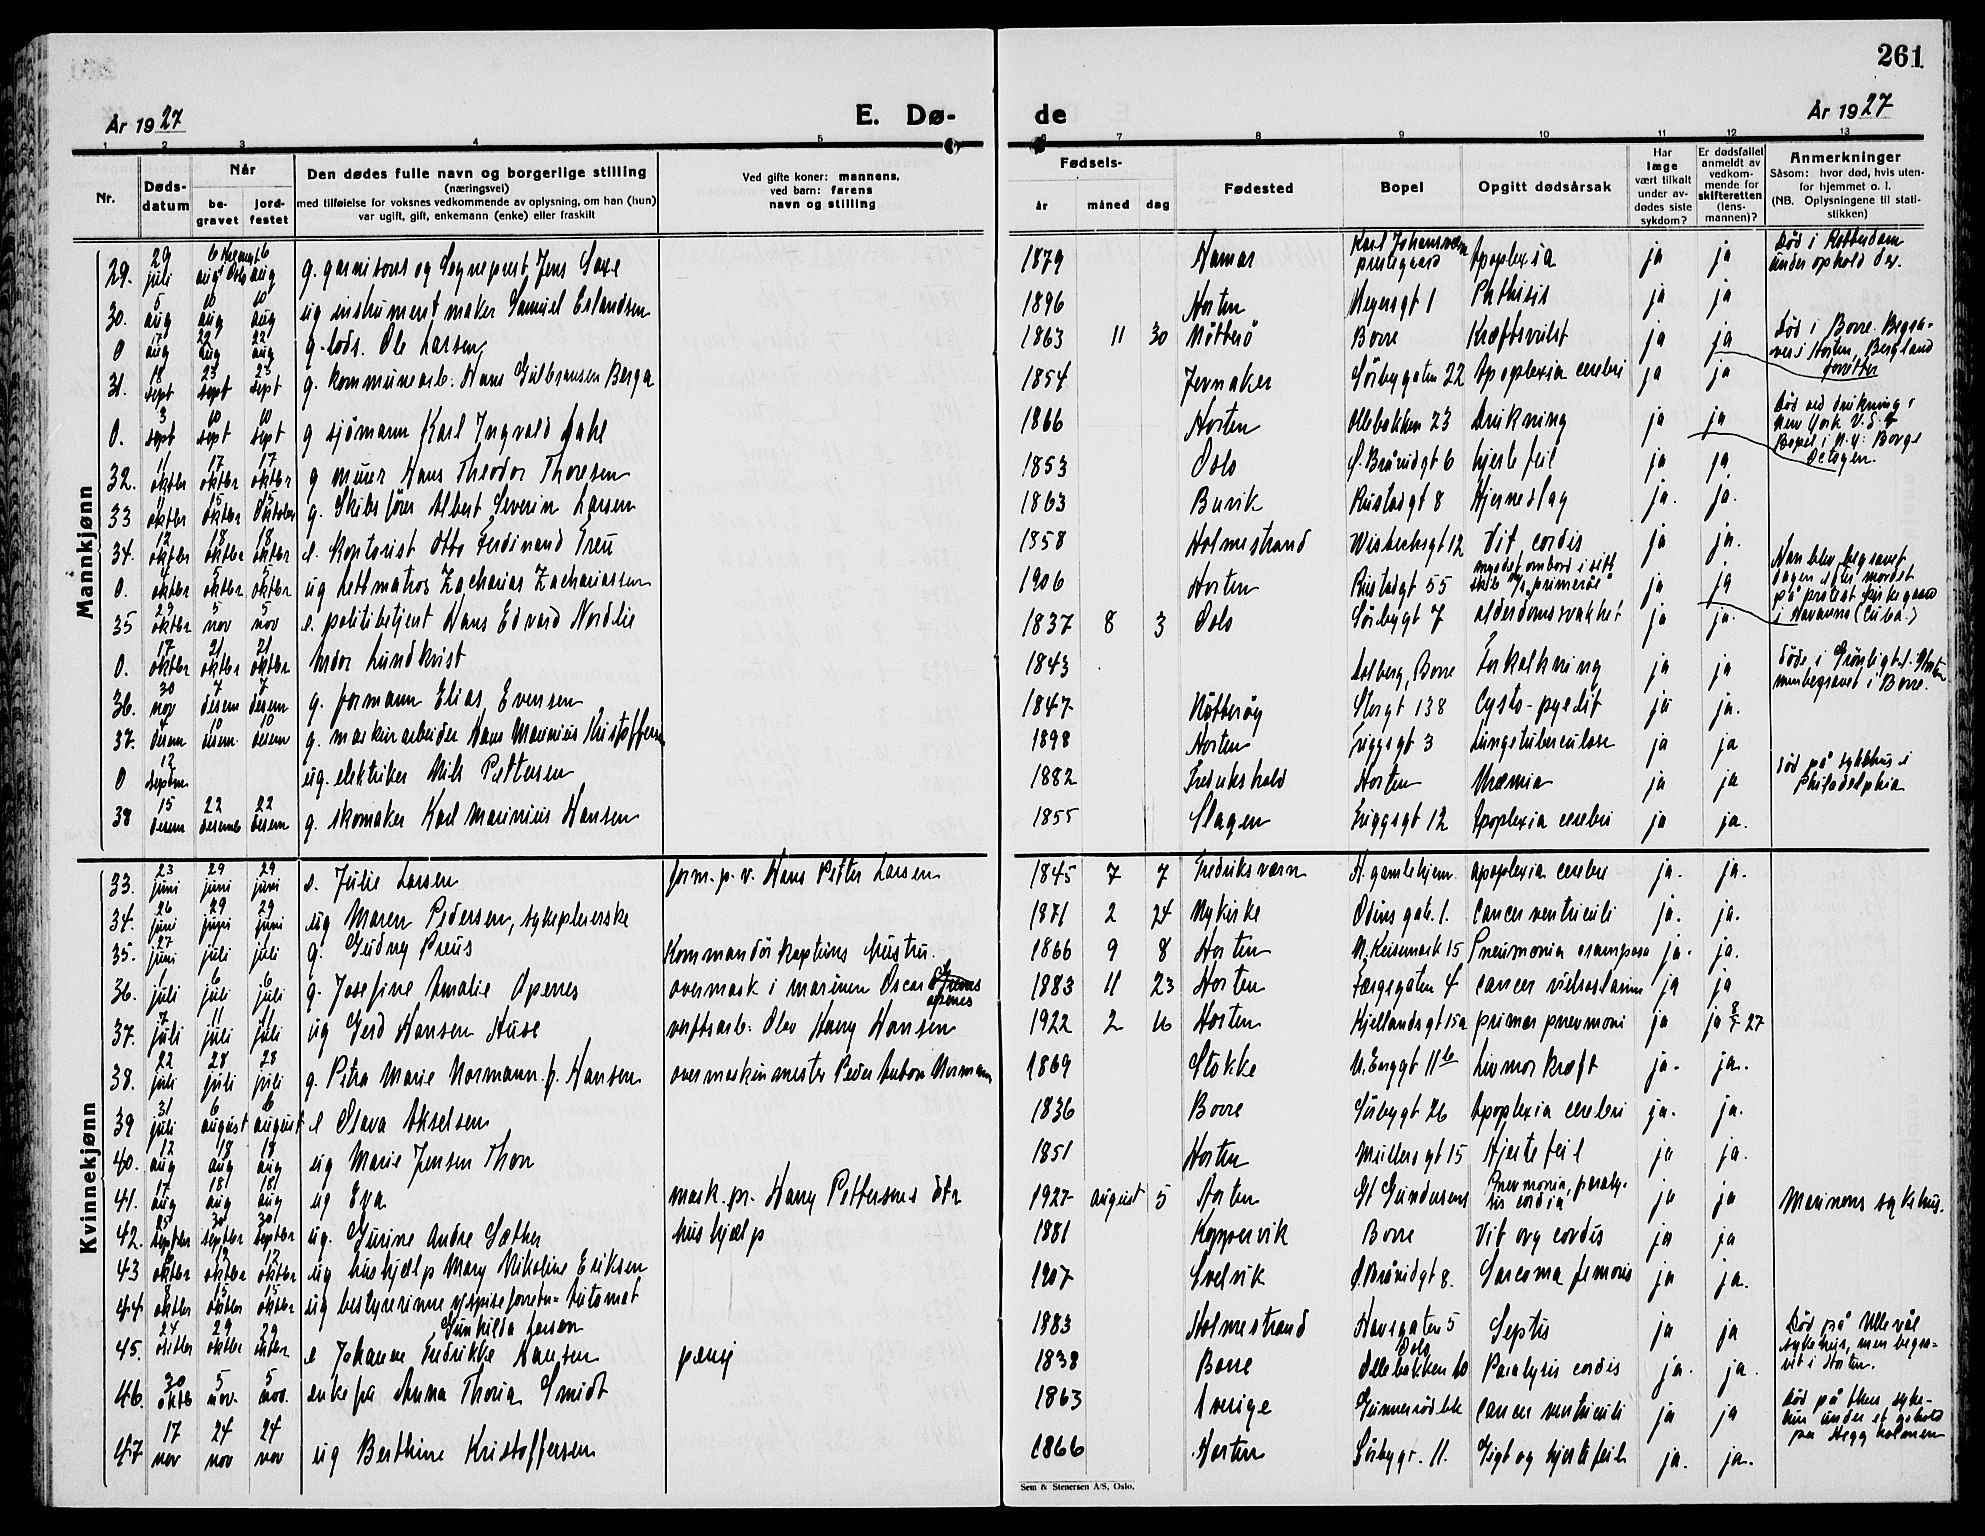 261
År 1927
E. Dø-
de
År 1927
1 2 3 4 5 6 7 8 9 10 11 12 13
Nr.
Døds-
datum
Når
be-
gravet
jord-
festet
Den dødes fulle navn og borgerlige stilling
(næringsvei)
med tilføielse for voksnes vedkommende av oplysning, om han (hun)
var ugift, gift, enkemann (enke) eller fraskilt
Ved gifte koner: mannens,
ved barn: farens
navn og stilling
Fødsels-
år måned dag
Fødested
Bopel
Opgitt dødsårsak
Har
læge
vært tilkalt
under av-
dødes siste
sykdom?
Er dødsfallet
anmeldt av
vedkom-
mende for
skifteretten
(lens-
mannen)?
Anmerkninger
Såsom: hvor død, hvis uten-
for hjemmet o. l.
(NB. Oplysningene til stati-
stikken)
Mannkjønn
29. 29 juli 6 aug 6 aug g. garnisons og Sogneprest Jens Saxe 1879 Hamar Karl Johansvern prestegaard Apoplexia ja ja Død i Rotterdam under ophold der.
30. 5 aug 10 aug 10 aug ug instrumentmaker Samuel Erlandsen 1896 Horten Meyersgt 1 Phthisis ja ja
0 17 aug 22 aug 22 aug g. lods. Ole Larsen 1863 11 30 Nøtterø Borre Kræftsvulst ja ja Død i Borre. Begra-
ves i Horten, Bergland forretter
31. 18 sept 23 sept 23 sept g. kommunearb. Hans Gulbransen Berga 1854 Jevnaker Sörbygaten 22 Apoplexia cerebri ja ja
0. 3 sept 10 sept 10 sept g sjömann Karl Ingvald Dahl 1866 Horten Ollebakken 23 Drukning ja ja Død ved drukning i New York U.S.A Bopel i N.Y. Borge
32. 11 oktbr 17 oktbr 17 oktbr g murer Hans Theodor Thoresen 1853 Oslo S. Bråvidgt 6 hjertefeil ja ja
33 11 oktbr 15 oktbr 15 Oktober g. Skibsfører Albert Severin Larsen 1863 Buvik Rustadgt 8 Hjerneslag ja. ja.
34. 12 oktber 18 oktbr 18 oktbr e. kontorist Otto Ferdinand Treu 1858 Holmestrand Wistechsgt 12 Vit. cordis ja ja.
0. 4 oktbr 5 oktbr 5 oktbr ug lettmatros Zacharias Zachariassen 1906 Horten Rustadgt 55 myrdet ombord i sitt skib "Primerose" ja ja Han blev begravet dagen efter mordet på protest. kirkegaard i Havanna (Cuba.)
35 29 oktbr 5 nov 5 nov e. politibetjent Hans Edvard Nordlie 1837 8 3 Oslo Sörbygt 7 alderdomsvakhet ja ja.
0. 17 oktbr 21 oktbr 21 oktbr Lundkvist 1843 Solberg, Borre Forkalkning ja ja döde i Grönligt. i Horten men begravet i Borre.
36. 30 nov 7 desem 7 desem g. formann Elias Evensen 1847 Nötteröy Storgt 138 Cysto-pyelit ja ja.
37. 4 desem 10 desem 10 desem g. maskinarbeider Hans Marinius Kristoffersen 1898 Horten Friggsgt 3 Lungetuberculose ja ja
0 12 septem ug. elektriker Nils Pettersen 1882 Fredrikshald Horten Uræmia ja ja död på sykehus i Philadelphia
38 15 desem 22 desemb 22 desem g. skomaker Karl Marinius Hansen 1855 Slagen Friggsgt 12 Apoplexia cerebri ja ja.
Kvinnekjønn
33. 23 juni 29 juni 29 juni e. Julie Larsen form. p. v. Hans Petter Larsen 1845 7 7 Fredriksværn H. gamlehjem apoplexia cerebri ja. ja.
34. 26 juni 29 juni 29 juni ug Maren Pedersen, sykepleierske 1871 2 24 Nykirke Odins gate. 1. cancer ventriculi ja. ja.
35. 27 juni juli juli g. Gudny Preus Kommandörkapteins hustru. 1866 9 8 Horten N. Keisemark 15 Pneumonia ja. ja.
36. 1 juli 6 juli 6 juli g. Josefine Amalie Openes overmask i marinen Oscar Openes 1883 11 23 Horten Færgegaten 4 cancer ja ja
37. 7 juli 11 juli 11 juli ug Gerd Hansen Huse verftsarb. Olav Harry Hansen 1922 2 Horten Kjellandsgt 15a primær pnevmoni ja ja 8/7 27
38. 22 juli 28 juli 28 juli g. Petra Marie Normann f. Hansen overmaskinmester Peder Anton Normann 1869 Stokke N. Enggt 11b Livmorkræft ja. ja.
39 31 juli 6 august 6 august e Olava Akselsen 1836 Borre Sörbygt 26 Apoplexia cerebri ja. ja.
40. 12 aug 18 aug 18 aug ug Marie Jensen Thon 1851 Horten Müllersgt 15 Hjertefeil ja ja.
41. 17 aug 18 aug 18 aug ug Eva mask. pr. Harry Pettersens dtr 1927 august 5 Horten St Gundersens Pnevmonia, paraly-
sis cordia ja ja Marinens sykehus.
42. 25 septbr 30 septbr 30 septbr ug. Gurine Andre Sæther hushjælp 1881 Koppervik Borre Vit org cordis ja ja
43 6 oktbr 12 oktbr 12 oktbr ug hushjælp Mary Nikoline Eriksen 1907 Svelvik S. Bråvidgt 8. Sarcoma femoris ja ja.
44 8 oktbr 15 oktbr 15 oktbr ug bestyrerinne v/spiseforretn= Automat Gunhilda Larsen 1883 Holmestrand Havsgaten 5 Oslo Septis ja ja Død på Ullevål sykehus, men begra-
vet i Horten.
45. 24 oktber 29 oktbr 29 oktbr e Johanne Fredrikke Hansen pensj 1838 Borre Ollebakken 10 Paralysis cordis ja. ja.
46. 30 oktb 5 nov. 5 nov. enkefru Anna Thoria Smidt 1863 Sverige Gunnerödbk cancer ventriculi ja ja Död på Aker syke-
hus under et ophold paa Heggholmen
47 17 nov 24 nov 24 nov ug Berthine Kristoffersen 1866 Horten Sörbygt. 11. Gigt og hjertefeil ja. ja.
Sem & Stenersen A/S, Oslo.